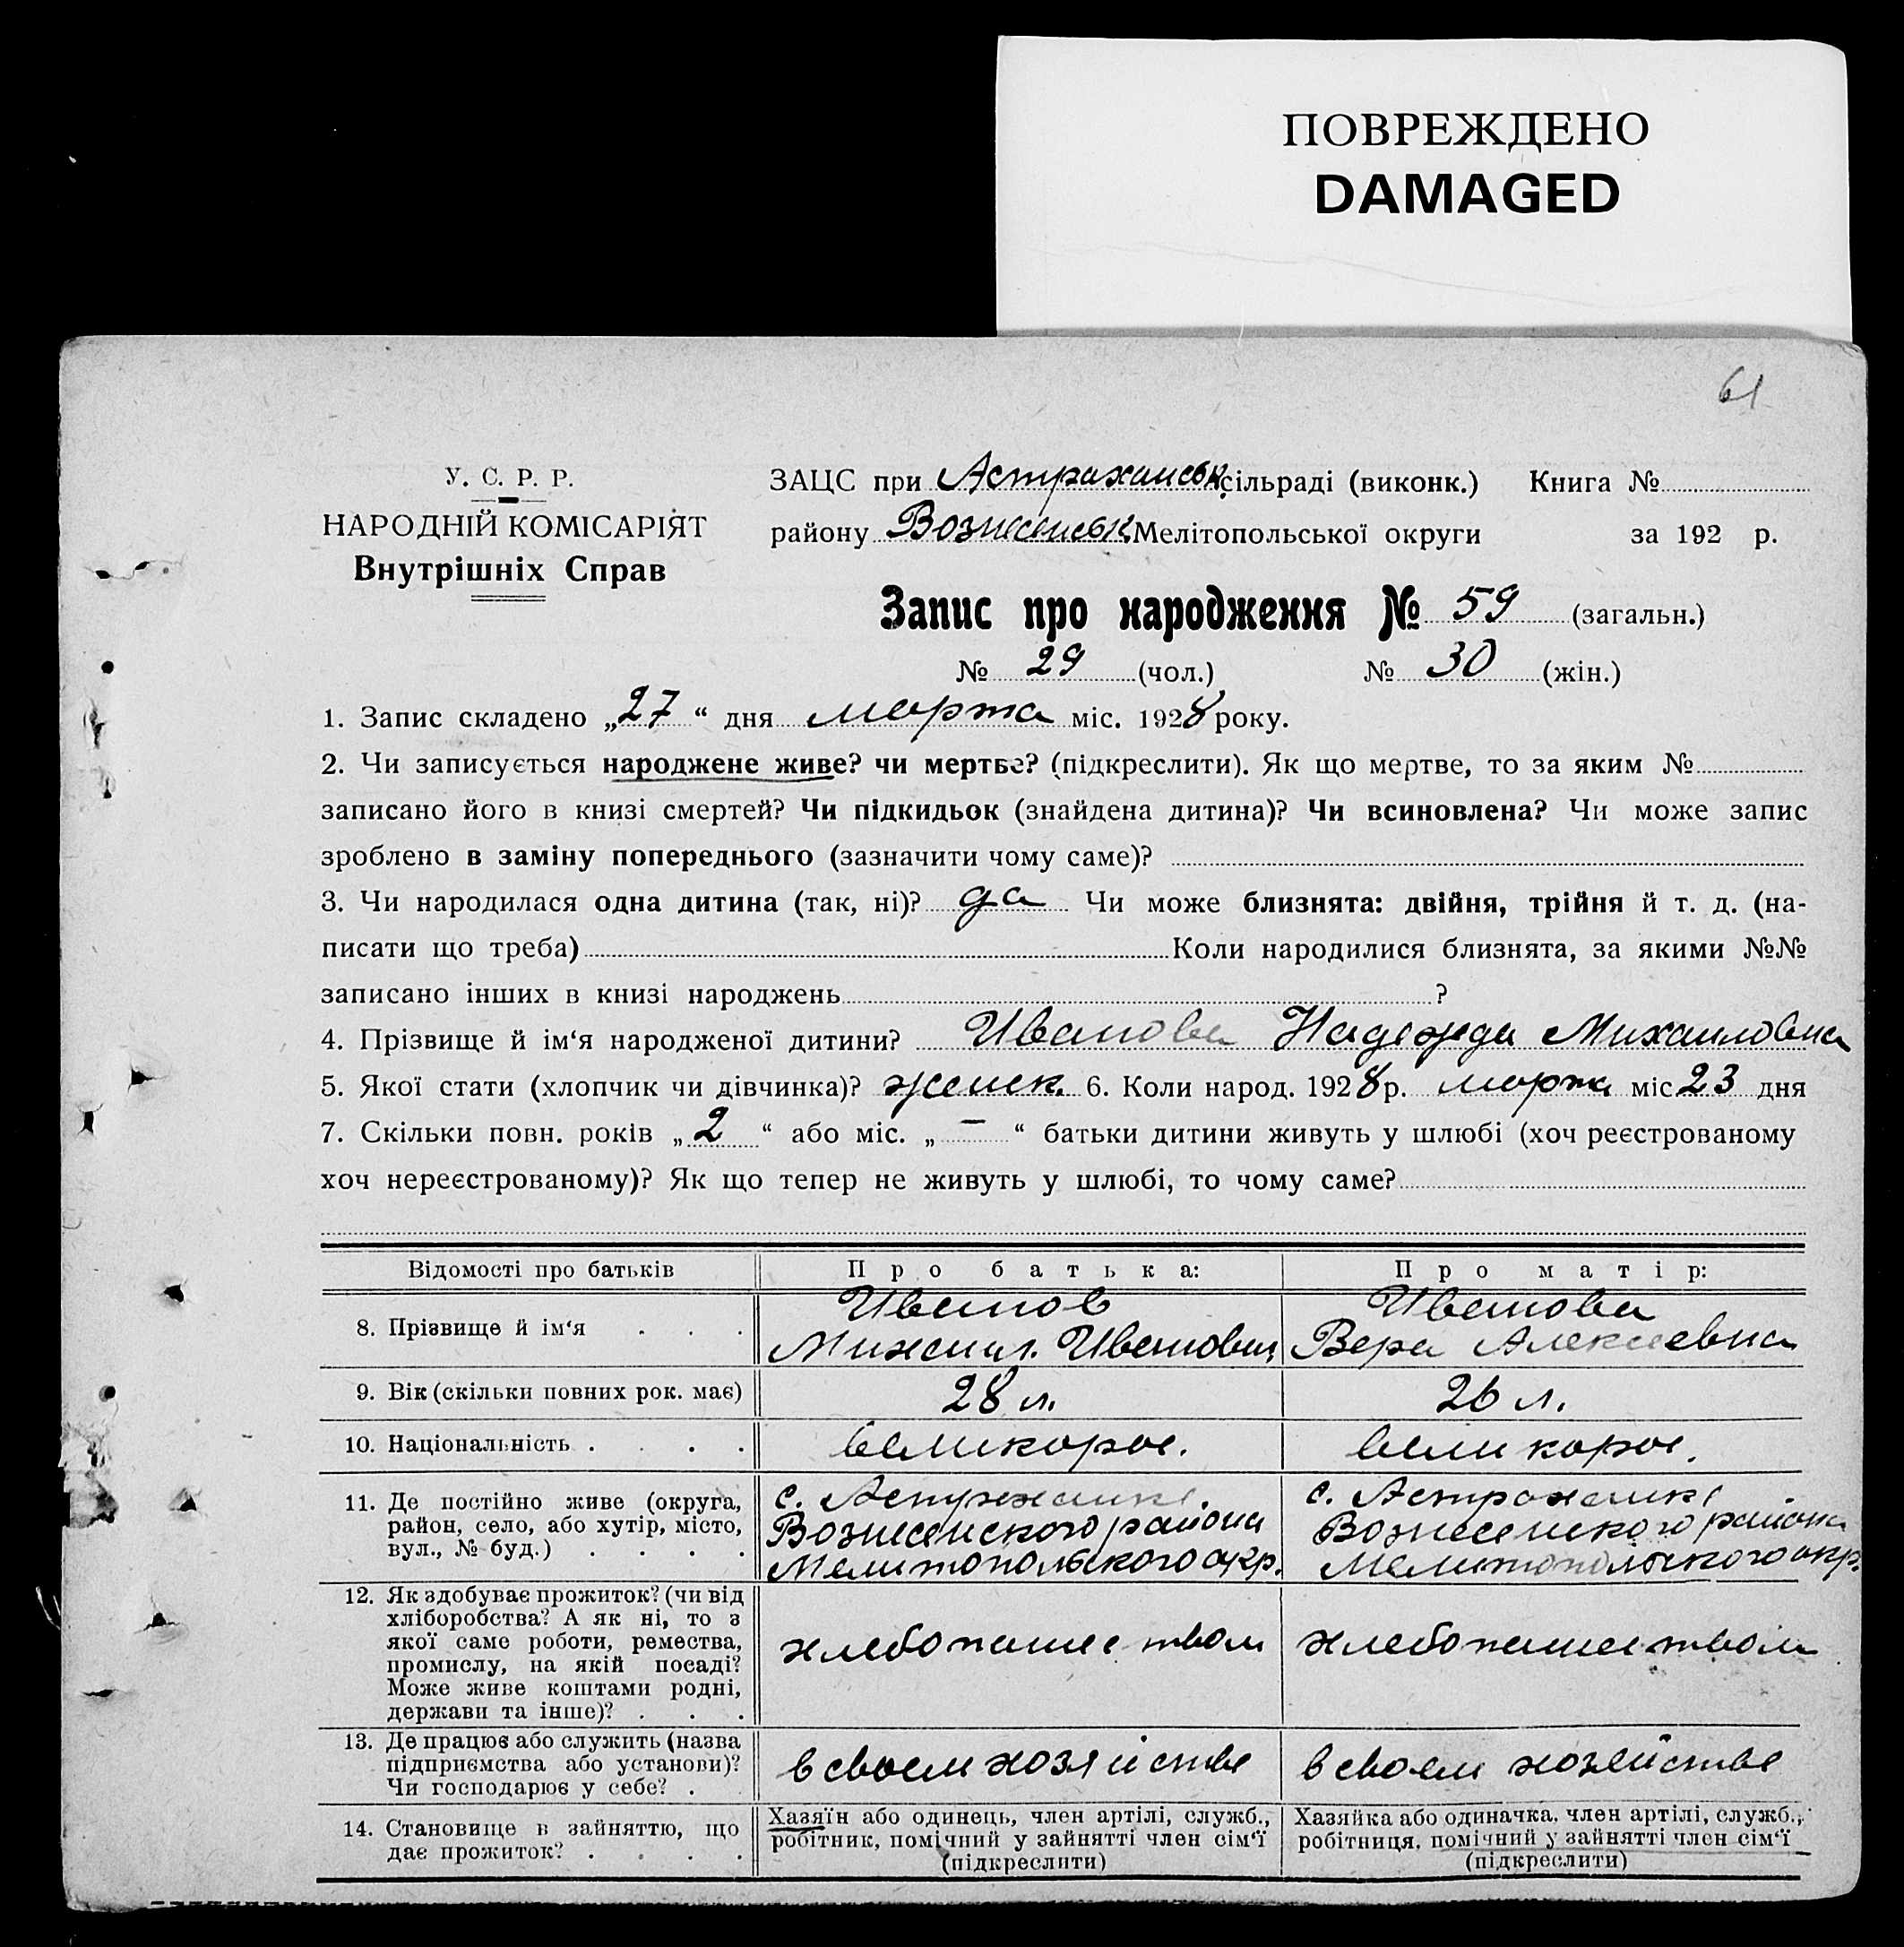 ПОВРЕЖДЕНО
DAMAGED
61
У. С. Р. Р.
НАРОДНІЙ КОМІСАРІЯТ
Внутрішніх Справ
ЗАЦС при Астраханськ. сільраді (виконк.) Книга №
району Вознесенськ Мелітопольської округи за 192 р.
Запис про народження № 59 (загальн.)
№ 29 (чол.) № 30 (жін.)
1. Запис складено „27“ дня марта міс. 1928 року.
2. Чи записується народжене живе? чи мертве? (підкреслити). Як що мертве, то за яким №
записано його в книзі смертей? Чи підкидьок (знайдена дитина)? Чи всиновлена? Чи може запис
зроблено в заміну попереднього (зазначити чому саме)?
3. Чи народилася одна дитина (так, ні)? да Чи може близнята: двійня, трійня й т. д. (на-
писати що треба) Коли народилися близнята, за якими №№
записано інших в книзі народжень ?
4. Прізвище й ім‘я народженої дитини? Иванова Надежда Михаиловна
5. Якої стати (хлопчик чи дівчинка)? женск. 6. Коли народ. 1928 р. марта міс 23 дня
7. Скільки повн. років „2“ або міс. „—“ батьки дитини живуть у шлюбі (хоч реєстрованому
хоч нереєстрованому)? Як що тепер не живуть у шлюбі, то чому саме?
Відомості про батьків Про батька: Про матір:
8. Прізвище й ім‘я . . . Иванов Михаил Иванович Иванова Вера Алексеевна
9. Вік (скільки повних рок. має) 28 л. 26 л.
10. Національність . . . . великорос. великорос.
11. Де постійно живе (округа, с. Астраханка с. Астраханка
район, село, або хутір, місто, Вознесенского района Вознесенского района
вул., № буд.) . . . . Мелитопольского окр. Мелитопольского окр.
12. Як здобуває прожиток? (чи від
хліборобства? А як ні, то з
якої саме роботи, ремества, хлебопашеством хлебопашеством
промислу, на якій посаді?
Може живе коштами родні,
держави та інше)? . . .
13. Де працює або служить (назва
підприємства або установи)? в своем хозяйстве в своем хозяйстве
Чи господарює у себе? .
14. Становище в зайняттю, що
дає прожиток? . . . .
Хазяїн або одинець, член артілі, служб.,
робітник, помічний у зайнятті член сім‘ї
(підкреслити)
Хазяйка або одиначка, член артілі, служб.,
робітниця, помічний у зайнятті член сім‘ї
(підкреслити)